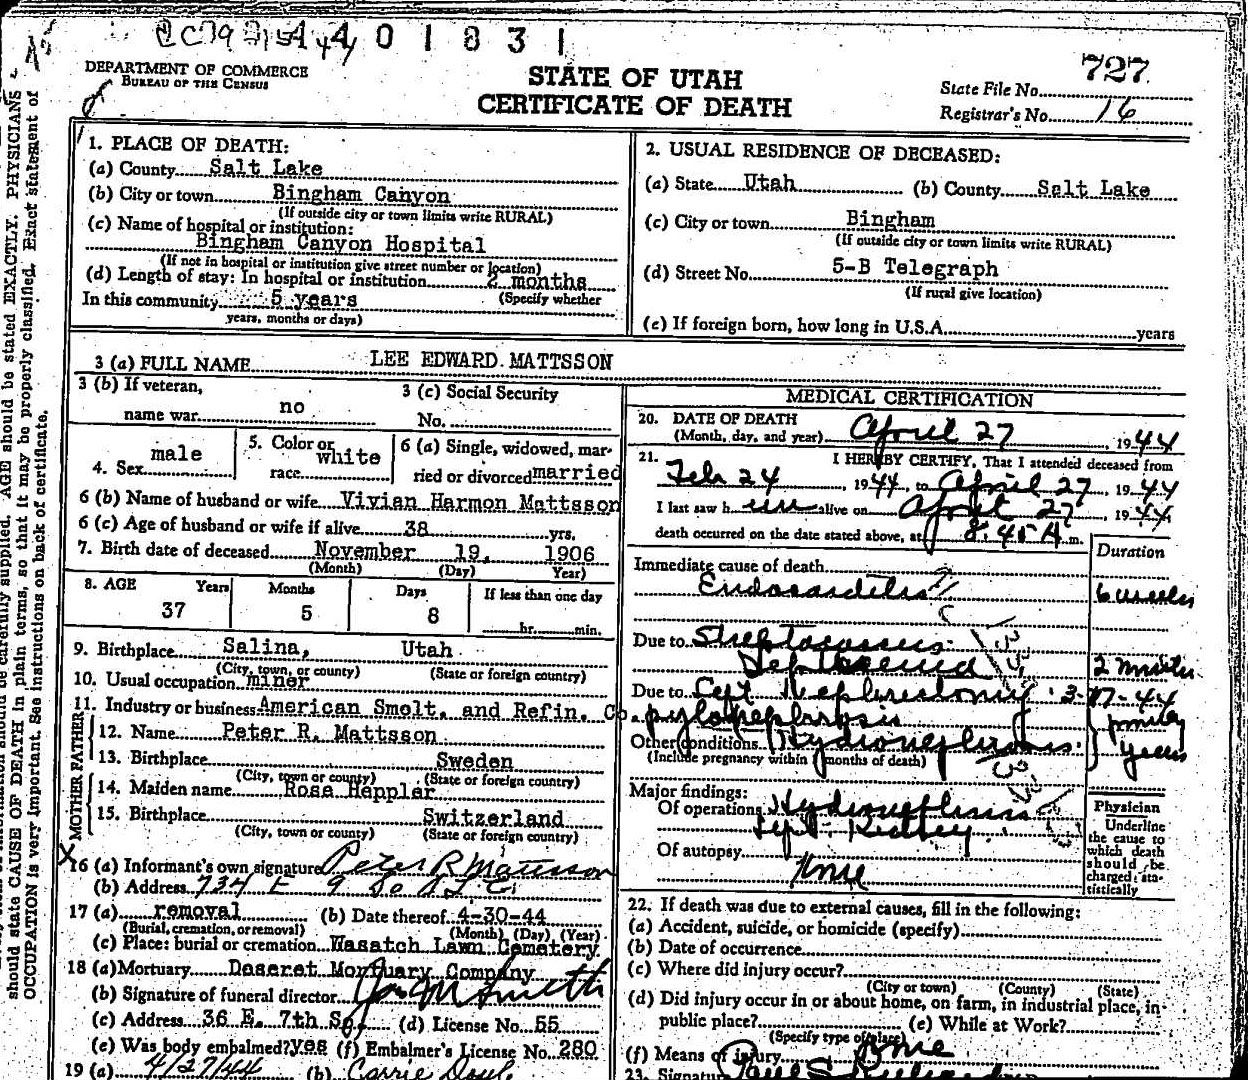 4 4 0 1 8 3 1
DEPARTMENT OF COMMERCE
BUREAU OF THE CENSUS
STATE OF UTAH
CERTIFICATE OF DEATH
State File No. 727
Registrar's No. 16
1. PLACE OF DEATH:
(a) County Salt Lake
(b) City or town Bingham Canyon
(If outside city or town limits write RURAL)
(c) Name of hospital or institution:
Bingham Canyon Hospital
(If not in hospital or institution give street number or location)
(d) Length of stay: In hospital or institution 2 months
In this community 5 years (Specify whether
years, months or days)
2. USUAL RESIDENCE OF DECEASED:
(a) State Utah (b) County Salt Lake
(c) City or town Bingham
(If outside city or town limits write RURAL)
(d) Street No. 5-B Telegraph
(If rural give location)
(e) If foreign born, how long in U.S.A. years
3 (a) FULL NAME LEE EDWARD MATTSSON
3 (b) If veteran,
name war no
3 (c) Social Security
No.
4. Sex male
5. Color or
race white
6 (a) Single, widowed, mar-
ried or divorced married
6 (b) Name of husband or wife Vivian Harmon Mattsson
6 (c) Age of husband or wife if alive 38 yrs.
7. Birth date of deceased November 19, 1906
(Month) (Day) Year)
8. AGE Years Months Days If less than one day
37 5 8 hr. min.
9. Birthplace Salina, Utah
(City, town, or county) (State or foreign country)
10. Usual occupation miner
11. Industry or business American Smelt. and Refin. Co.
FATHER
12. Name Peter R. Mattsson
13. Birthplace Sweden
(City, town or county) (State or foreign country)
MOTHER
14. Maiden name Rosa Heppler
15. Birthplace Switzerland
(City, town or county) (State or foreign country)
X
16 (a) Informant's own signature Peter R Mattsson
(b) Address 734 E 9 So S.L.C.
17 (a) removal (b) Date thereof 4-30-44
(Burial, cremation, or removal) (Month) (Day) (Year)
(c) Place: burial or cremation Wasatch Lawn Cemetery
18 (a) Mortuary Deseret Mortuary Company
(b) Signature of funeral director Smith
(c) Address 36 E. 7th So. (d) License No. 55
(e) Was body embalmed? yes (f) Embalmer's License No. 280
19 (a) 4/27/44 (b) Carrie
MEDICAL CERTIFICATION
20. DATE OF DEATH
(Month, day, and year) April 27, 1944
21. I HEREBY CERTIFY, That I attended deceased from
Feb 24, 1944, to April 27, 1944
I last saw h im alive on April 27, 1944,
death occurred on the date stated above, at 8:45 A m.
Duration
Immediate cause of death
Endocarditis 6 weeks
Due to Streptococcus
Septicemia 2 months
Due to Left Nephrectomy 3-17-44
Other conditions Hydronephrosis years
(Include pregnancy within months of death)
Major findings:
Of operations Hydronephrosis
Left Kidney
Of autopsy
None
Physician
Underline
the cause to
which death
should be
charged sta-
tistically
22. If death was due to external causes, fill in the following:
(a) Accident, suicide, or homicide (specify)
(b) Date of occurrence
(c) Where did injury occur?
(City or town) (County) (State)
(d) Did injury occur in or about home, on farm, in industrial place, in
public place? (e) While at Work?
(Specify type of place)
(f) Means of injury None
23. Signature Paul S Richards
AGE should be stated EXACTLY. PHYSICIANS
should state CAUSE OF DEATH in plain terms, so that it may be properly classified. Exact statement of
OCCUPATION is very important. See instructions on back of certificate.